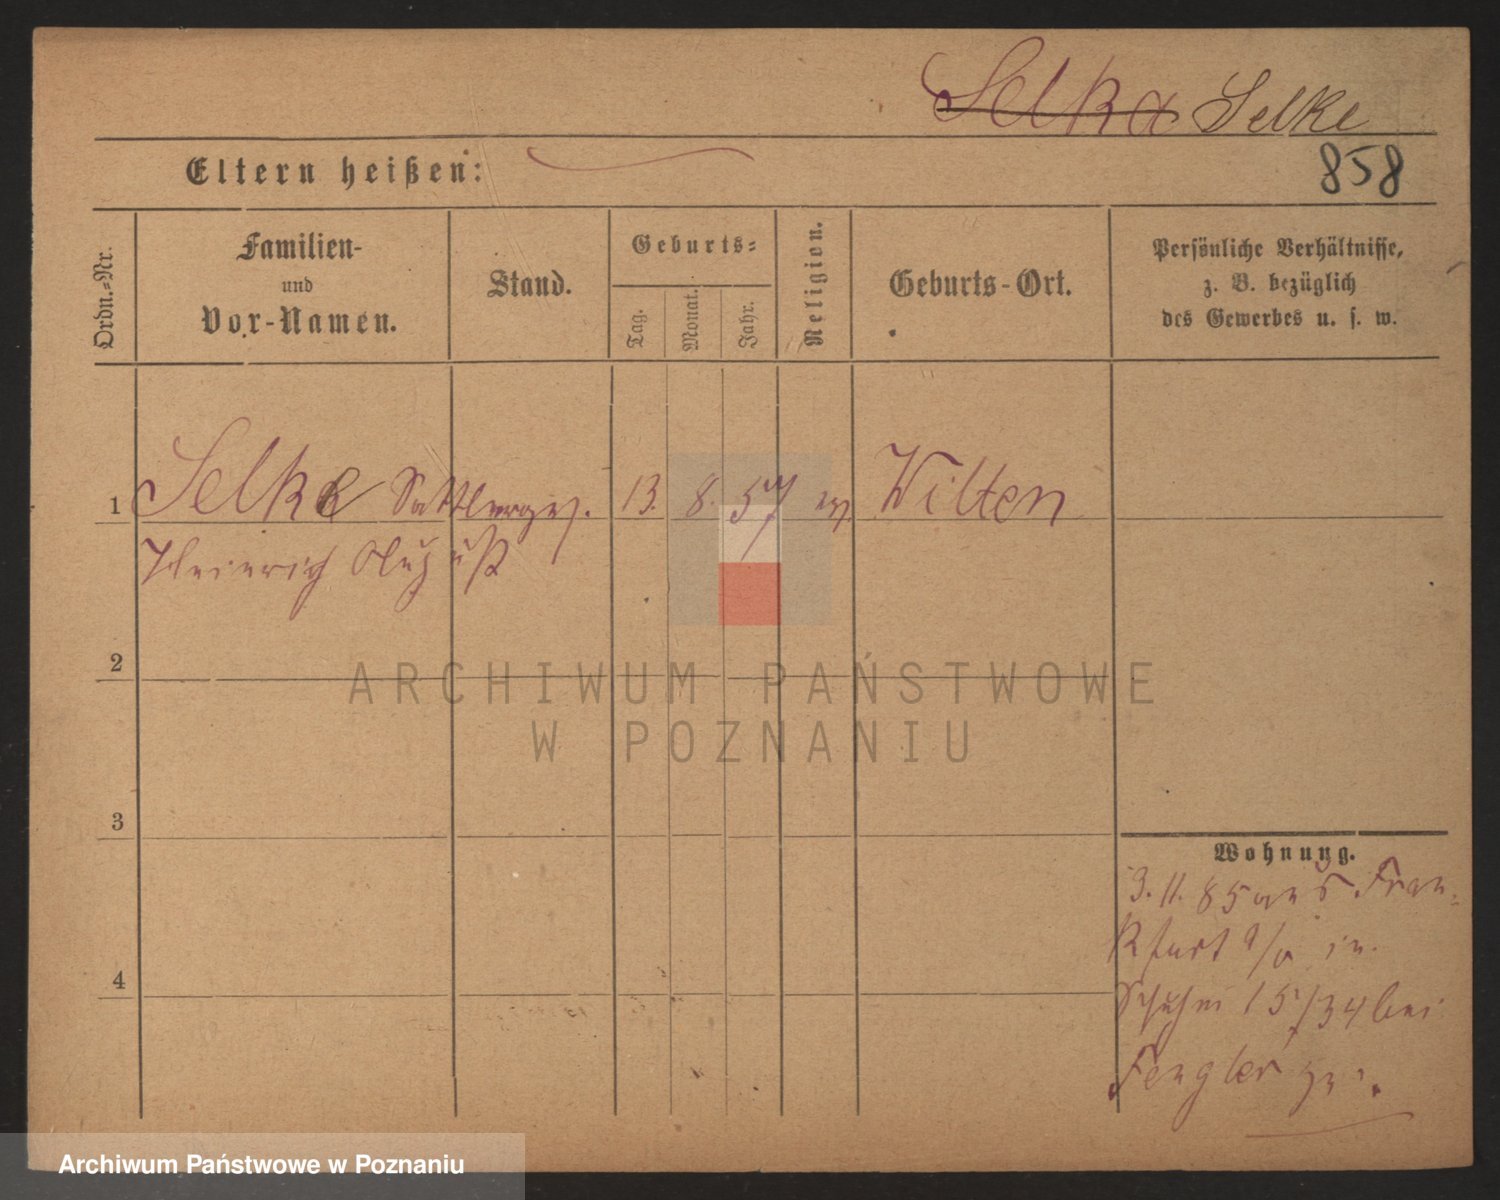 Selka Selke
Eltern heißen:
858
Ordn.-Nr.
Familien-
und
Vor-Namen.
Stand.
Geburts-
Tag.
Monat.
Jahr.
Religion.
Geburts-Ort.
Persönliche Verhältnisse,
z. B. bezüglich
des Gewerbes u. s. w.
1 Selke Sattlerges. 13. 8. 57 ev. Wilten
Heinrich August
2
ARCHIWUM PAŃSTWOWE
W POZNANIU
3
Wohnung.
3. 11. 85 aus Fran-
kfurt a/o in
4
15/34 bei
Fengler
Archiwum Państwowe w Poznaniu